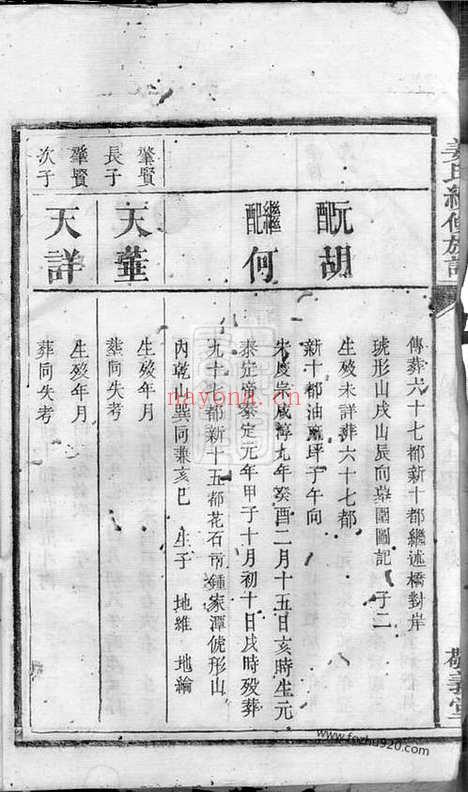 姜氏續修族譜
敬義堂
傳葬六十七都新十都繼述橋對岸
琥形山戌山辰向墓圖圖記 子二
元配 胡
生歿未詳葬六十七都
新十都油麻坪子午向
繼配 何
宋度宗咸淳九年癸酉二月十五日亥時生元
泰定帝泰定元年甲子十月初十日戌時歿葬
九十七都新十五都花石司鍾家潭俿形山
內乾山巽向兼亥巳 生子 地維 地綸
肇賢長子
天葷
生歿年月
葬向失考
肇賢次子
天詳
生歿年月
葬向失考
nayona.cn
www.fozhu920.com